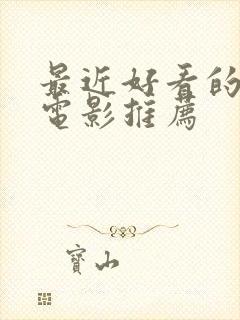 最近好看的
電影推薦
寶山